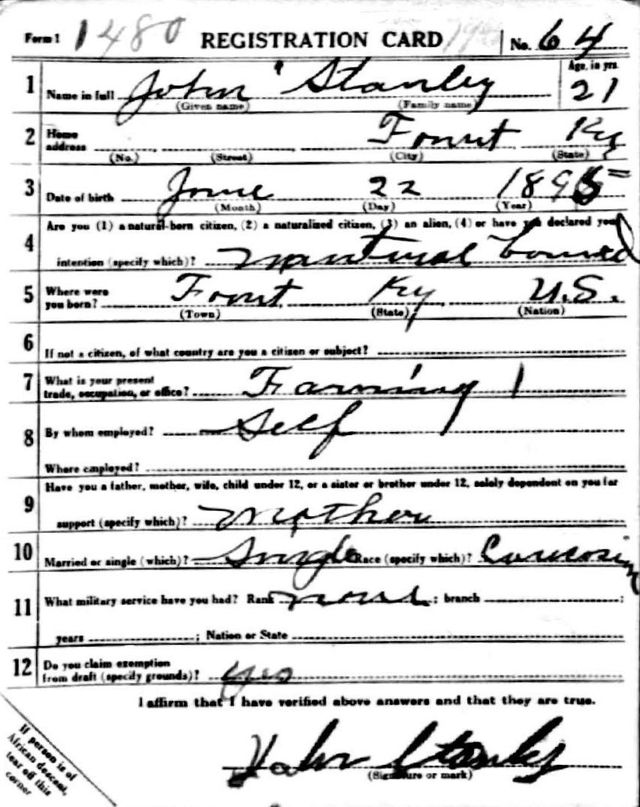 Form 1 1480 REGISTRATION CARD No. 64
1 Name in full John Stanley Age, in yrs. 21
(Given name) (Family name)
2 Home address Fount Ky
(No.) (Street) (City) (State)
3 Date of birth June 22 1895
(Month) (Day) (Year)
4 Are you (1) a natural-born citizen, (2) a naturalized citizen, (3) an alien, (4) or have you declared your
intention (specify which)? natural borned
5 Where were you born? Fount Ky U.S.
(Town) (State) (Nation)
6 If not a citizen, of what country are you a citizen or subject?
7 What is your present trade, occupation, or office? Farming
8 By whom employed? Self
Where employed?
9 Have you a father, mother, wife, child under 12, or a sister or brother under 12, solely dependent on you for
support (specify which)? Mother
10 Married or single (which)? Single Race (specify which)?
11 What military service have you had? Rank none ; branch ;
years ; Nation or State
12 Do you claim exemption from draft (specify grounds)? yes
I affirm that I have verified above answers and that they are true.
John Stanley
(Signature or mark)
If person is of
African descent,
tear off this
corner